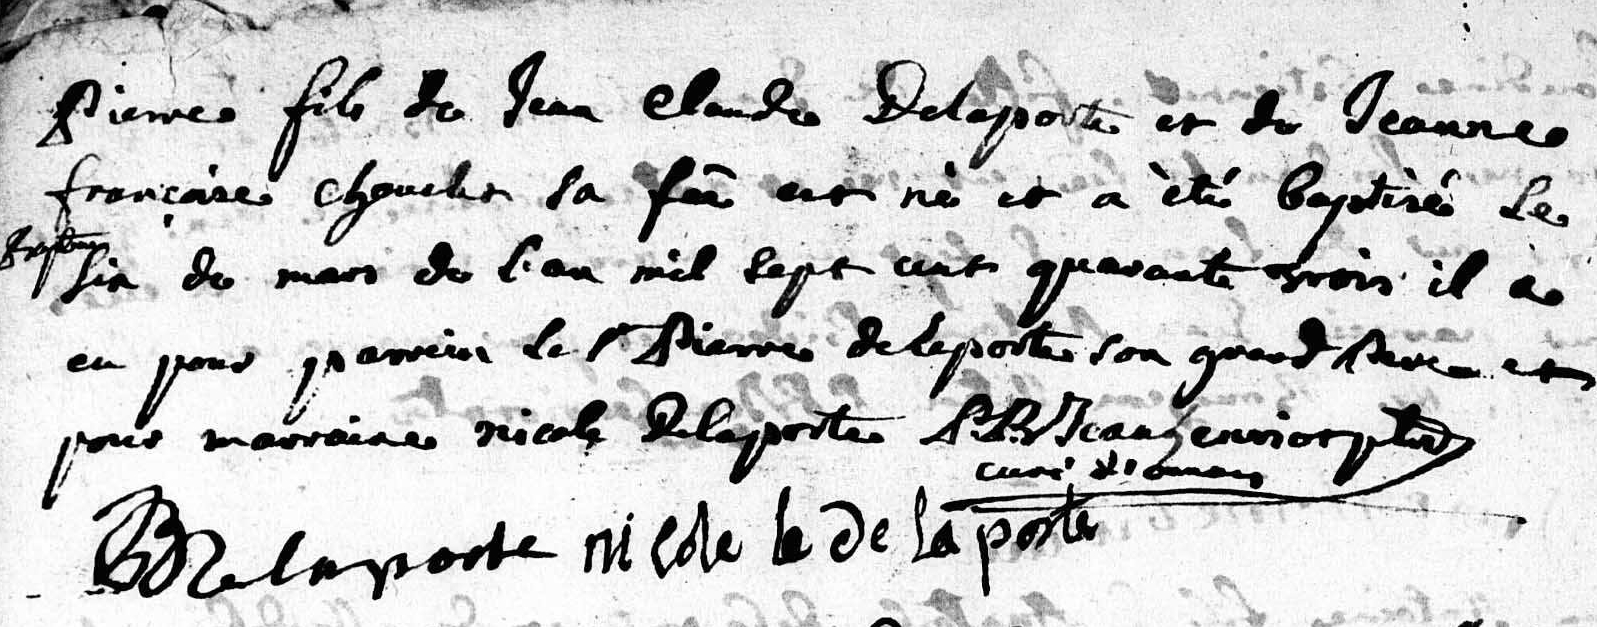 Pierre fils de Jean Claude Delaporte et de Jeanne
françoise chouelet sa fẽe est né et a èté baptisé le
six de mars de l'an mil sept cent quarante trois il a
eu pour parrein le Sr Pierre delaporte son grand Pere et
pour marraine nicole Delaporte
curé d'ornans
P Delaporte nicole de la porte